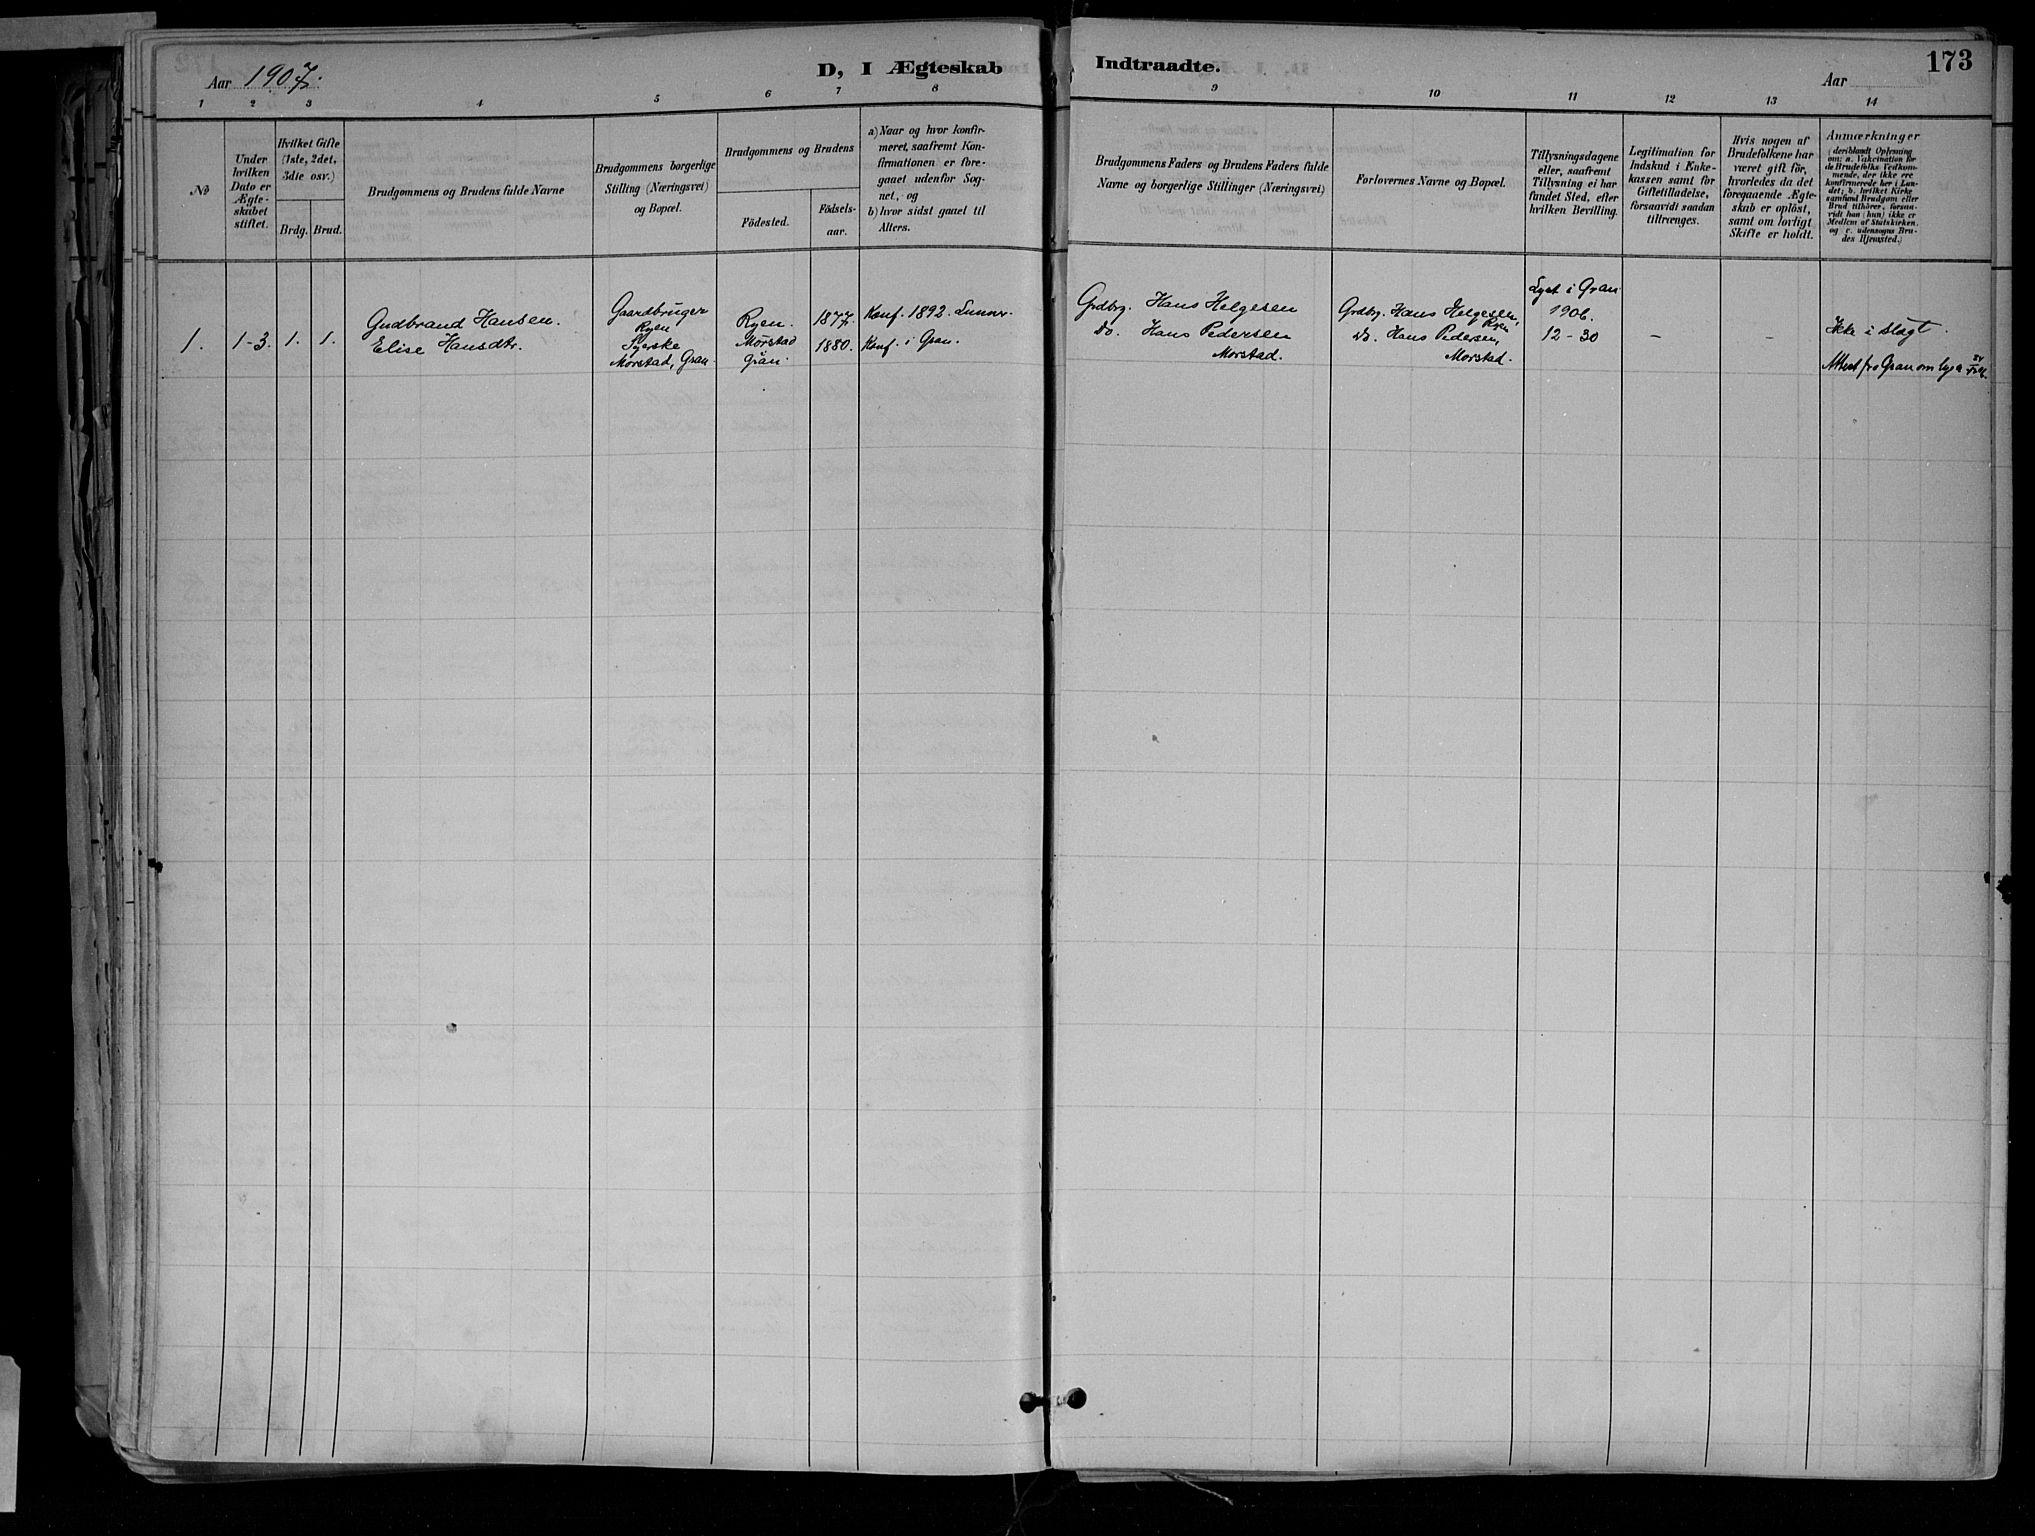 Aar 1907.
D, I Ægteskab Indtraadte.
173
Aar
1 2 3 4 5 6 7 8 9 10 11 12 13 14
No
Under hvilken Dato er Ægte-skabet stiftet.
Hvilket Gifte (1ste, 2det, 3die osv.)
Brdg. Brud.
Brudgommens og Brudens fulde Navne
Brudgommens borgerlige Stilling (Næringsvei) og Bopæl.
Brudgommens og Brudens
Födested.
Födsels-aar.
a) Naar og hvor konfir-meret, saafremt Kon-firmationen er fore-gaaet udenfor Sog-net, og
b) hvor sidst gaaet til Alters.
Brudgommens Faders og Brudens Faders fulde Navne og borgerlige Stillinger (Næringsvei)
Forlovernes Navne og Bopæl.
Tillysningsdagene eller, saafremt Tillysning ei har fundet Sted, efter hvilken Bevilling.
Legitimation for Indskud i Enke-kassen samt för Giftetilladelse, forsaavidt saadan tiltrænges.
Hvis nogen af Brudefolkene har været gift för, hvorledes da det foregaaende Ægte-skab er oplöst, samt om lovligt Skifte er holdt.
Anmærkninger
(deriblandt Oplysning om: a. Vakcination for de Brudefolks Vedkom-mende, der ikke ere konfirmerede her i Lan-det; b. hvilket Kirke-samfund Brudgom eller Brud tilhörer, forsaa-vidt han (hun) ikke er Medlem af Statskirken, og c. udensogns Bru-des Hjemsted.)
1.
1-3.
1. 1.
Gudbrand Hansen.
Elise Hansdtr.
Gaardbruger
Ryen
Syerske
Morstad, Gran
Ryen.
Morstad
Gran.
1877.
1880.
Konf. 1892. Lunner.
Konf. i Gran.
Grdbrg. Hans Helgesen
Do. Hans Pedersen
Morstad.
Grdbrg. Hans Helgesen,
Ryen
Do. Hans Pedersen,
Morstad.
Lyst i Gran
1906.
12-30
-
-
Ikke i slægt.
Attest fra Gran om lysn.